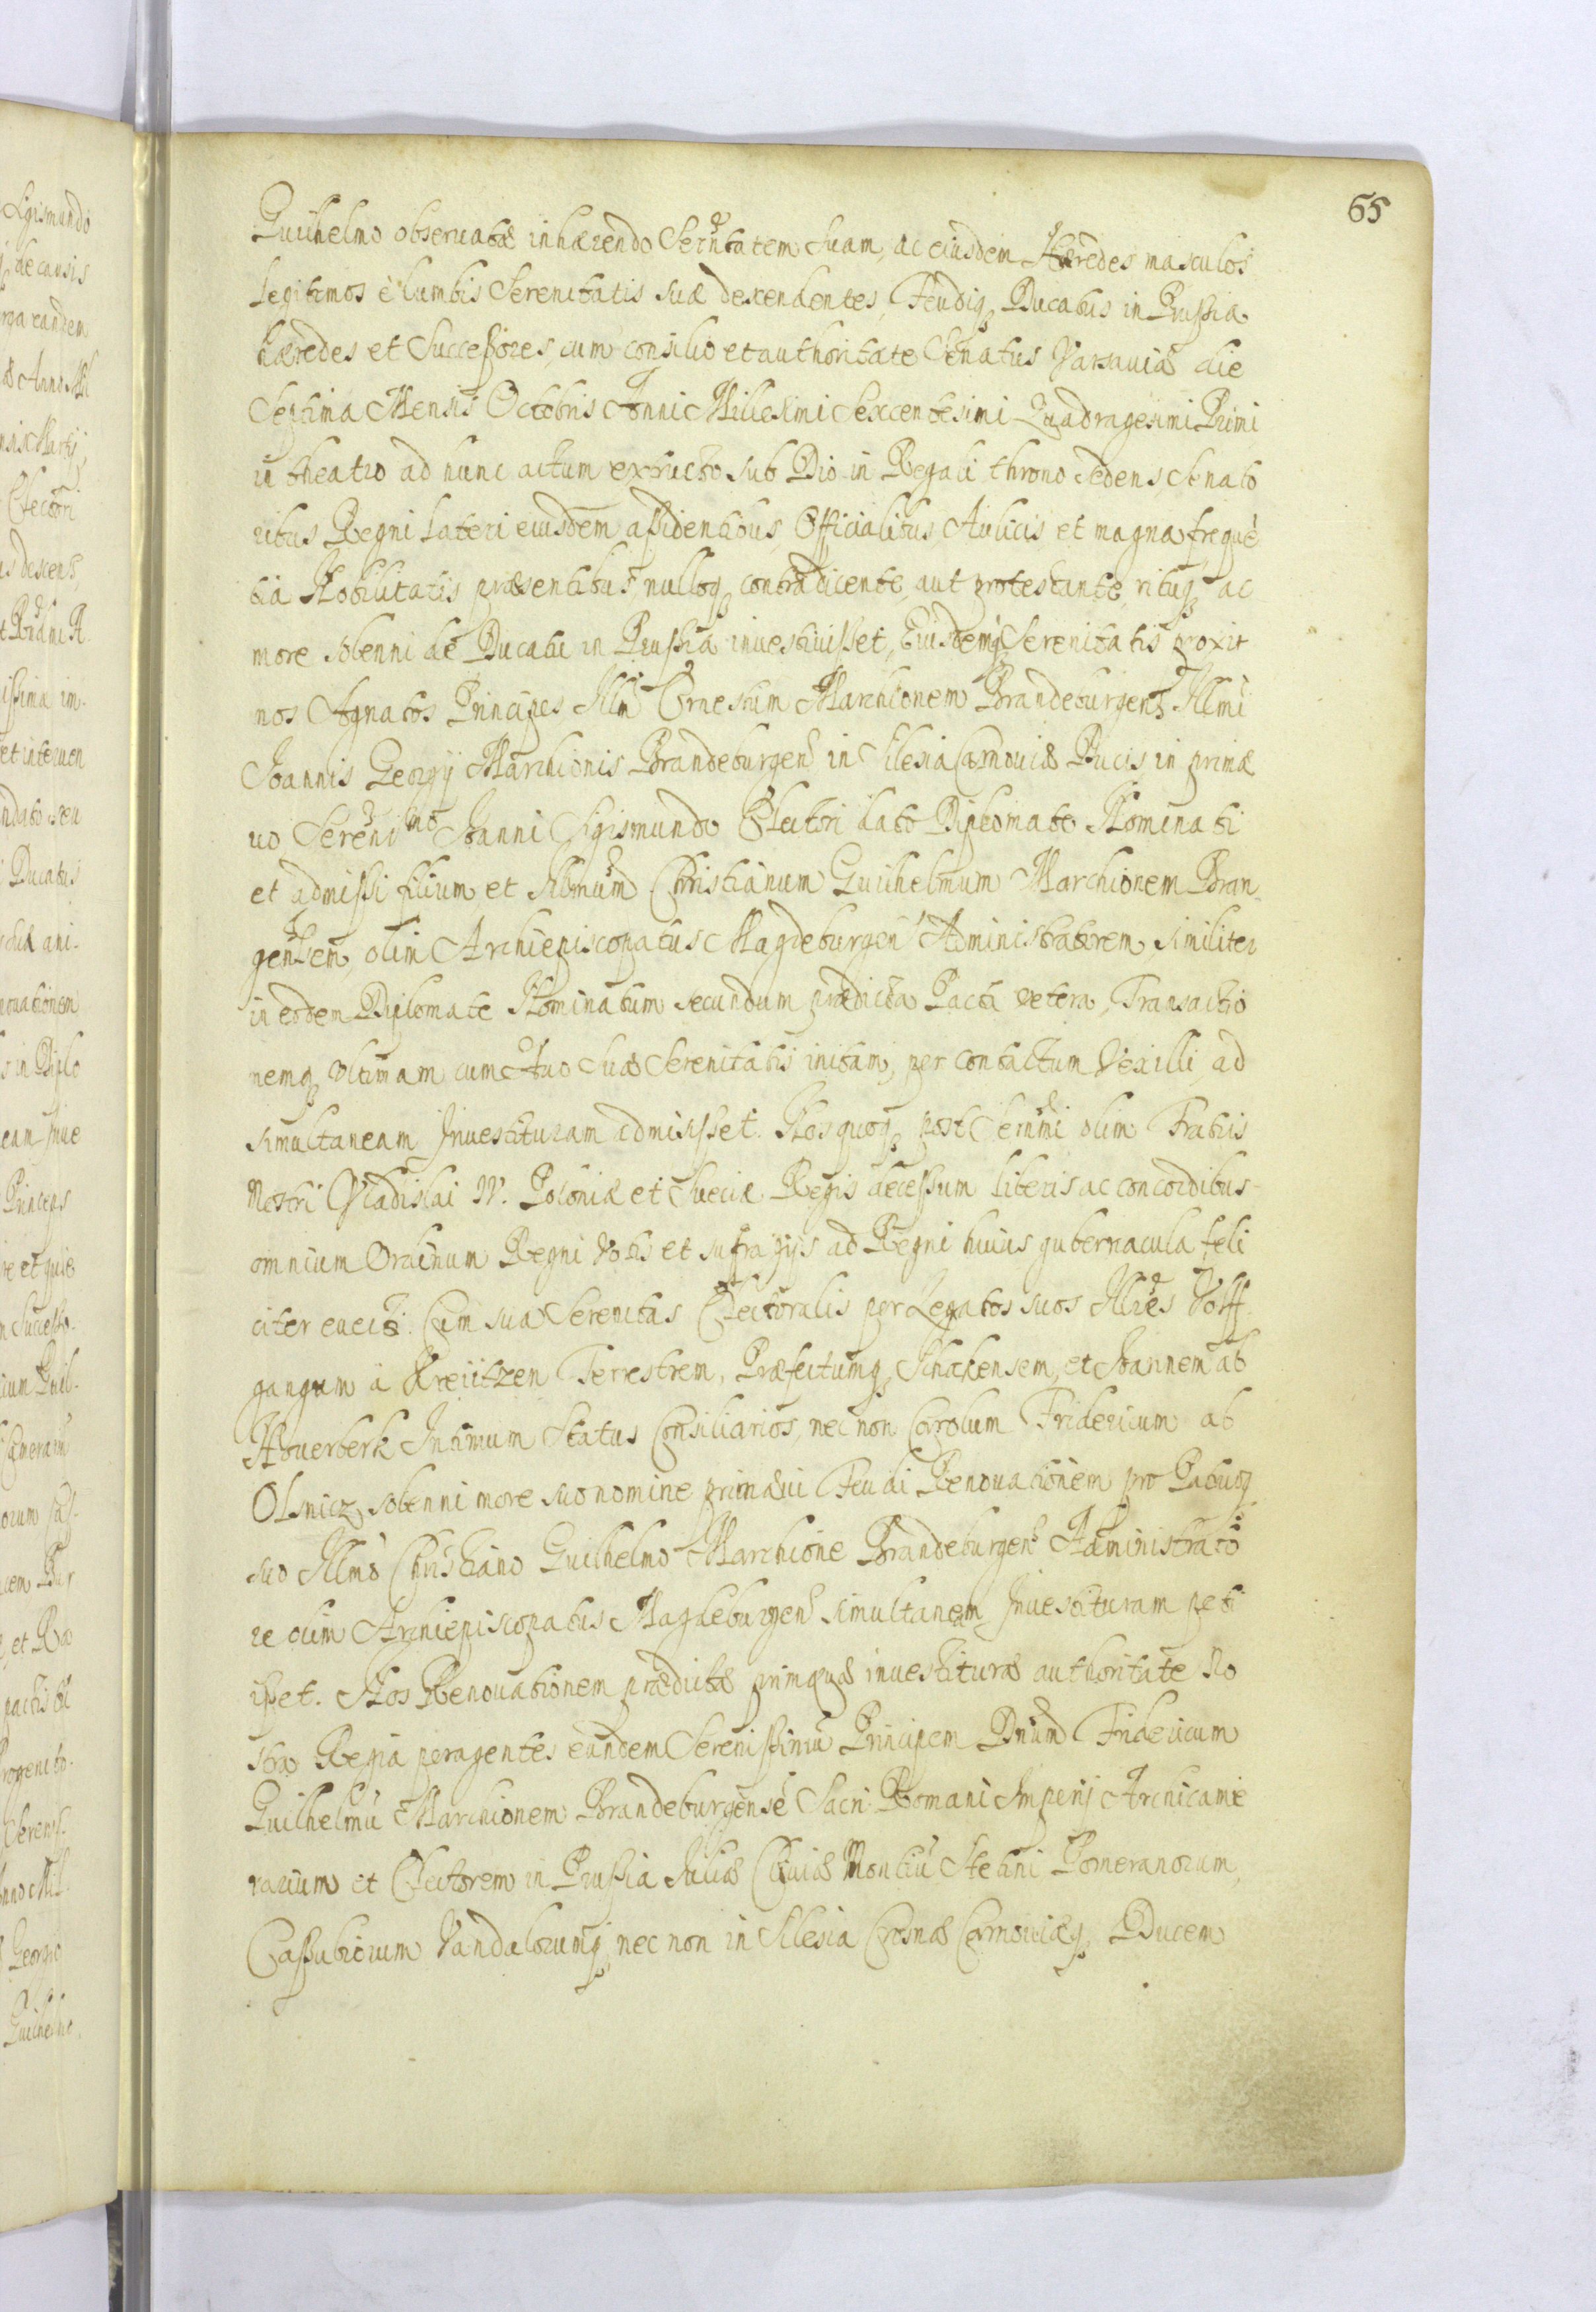 65
Guilhelmo observatæ inhærendo Serñtatem Suam, ac eiusdem Hæredes masculos
legitimos è lumbis Serenitatis suæ descendentes, Feudiq Ducatus in Prussia
hæredes et Successores, cum consilio et authoritate Senatus Varsaviæ die
Septima Mensis Octobris Anni Millesimi Sexcentesimi Quadragesimi Primi
in theatro ad hunc actum extructo sub Dio in Regali throno sedens, Senato
ribus Regni lateri eiusdem assidentibus, Officialibus, Aulicis et magna frequē
tia Nobilitatis præsentibus, nulloq contradicente, aut protestante, rituq ac
more solenni de Ducatu in Prussia investivisset, Eiusdemq Serenitatis proxi
nos Agnatos Principes Illm̃ Ernestum Marchionem Brandeburgens Illmi
Joannis Georgij Marchionis Brandeburgen in Silesia Carnoviæ Ducis in primæ
vo Sereniss̃mo Joanni Sigismundo Electori dato Diplomate Nominati
et admissi filium, et Illmum Christianum Guilhelmum Marchionem Bran
gensem, olim Archiepiscopatus Magdeburgen Administratorem, similiter
in eodem Diplomate Nominatum secundum prædicta Pacta vetera, Transactio
nemq ultimam cum Avo Suæ Serenitatis initam, per contactum Vexilli, ad
simultaneam Investituram admisisset. Nos quoq post Serñmi olim Fratris
Nostri Vladislai IV. Poloniæ et Sueciæ Regis decessum liberis ac concordibus
omnium Ordinum Regni Votis et sufragijs ad Regni huius gubernacula feli
citer evecti. Cum sua Serenitas Electoralis per Legatos suos Illres Volff
gangum a Kreiitzen Terrestrem, Præfectumq Schakensem, et Joannem ab
Hoverberk Intimum Status Consiliarios, nec non Carolum Fridericum ab
Olsnicz, solenni more suo nomine primævi Feudi Renovationem pro Patruoq
suo Illmo Christiano Guilhelmo Marchione Brandeburgen Administrato
re olim Archiepiscopatus Magdeburgen simultaneam Investituram peti
isset. Nos Renovationem prædictæ primævæ investituræ authoritate No
stra Regia peragentes eundem Serenissimū Principem Dnum Fridericum
Guilhelmū Marchionem Brandeburgensē Sacri Romani Imperij Archicame
rarium et Electorem in Prussia Juliæ Cliviæ Montiū Stetini Pomeranorum,
Cassubiorum Vandalorumq, nec non in Silesia Crosnæ Carnoviæq Ducem